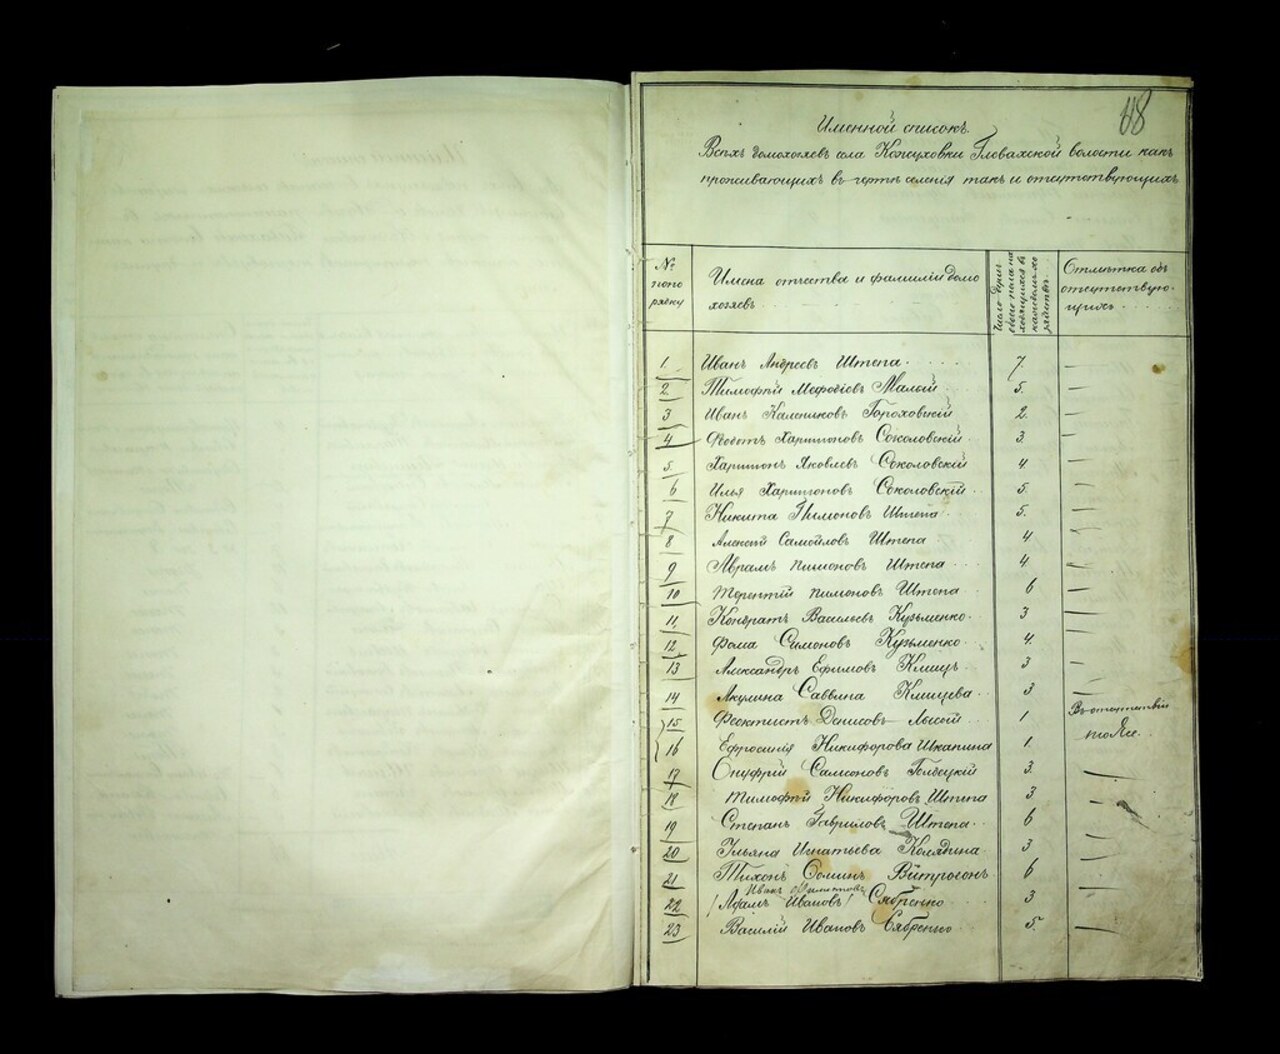 48
Именной списокъ
Всѣхъ домохозяевъ села Кожуховки Гловахской волости какъ
проживающихъ въ чертѣ селенія такъ и отсутствующихъ
№ по порядку
Имена отчества и фамилій домохозяевъ
Отмѣтка объ отсутствующихъ
1. Иванъ Андреевъ Штепа 7.
2. Тимофѣй Мефодіевъ Малый 5.
3 Иванъ Калениковъ Гороховскій 2.
4 Федотъ Харитоновъ Соколовскій 3.
5. Харитонъ Яковлевъ Соколовскій 4.
6 Илья Харитоновъ Соколовскій 5.
7 Никита Пимоновъ Штепа 5.
8 Алексѣй Самойловъ Штепа 4
9 Аврамъ Пимоновъ Штепа 4
10 Терентій Пимоновъ Штепа 6
11. Кондратъ Васильевъ Кузьменко 3
12 Фома Симоновъ Кузьменко 4.
13 Александръ Ефимовъ Клищъ 3
14 Акулина Саввина Клищева 3
15 Феоктистъ Денисовъ Лысой 1 Въ отсутствіи
16 Ефросинія Никифорова Шкапина 1. то же
17 Онуфрій Самсоновъ 3.
18 Тимофѣй Никифоровъ Штепа 3
19 Степанъ Гавриловъ Штепа 6
20 Ульяна Игнатьева Колядина 3
21 Тихонъ Соминъ Вѣтрогонъ 6
Иванъ
22 (Адамъ Ивановъ) Сябренко 3
23 Василій Ивановъ Сябренко 5.